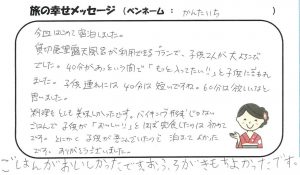 旅の幸せメッセージ (ペンネーム : かんたいち )
今回はじめて宿泊しました。
貸切展望露天風呂が利用できるプランで、子供さんが大よろこび
でした。40分があっという間で「もっと入っていたい!!」と子供に言われ
ました。子供連れには40分は短いですね。60分は欲しいなと
思いました。
料理もとても美味しかったです。バイキング形式じゃない
ごはんで子供が「おいしい!!」とほぼ完食したのは初めて
です。とにかく子供が喜んでいたので泊まってよかった
です。ありがとうございました。
ごはんがおいしかったですおふろがきもちよかったです。